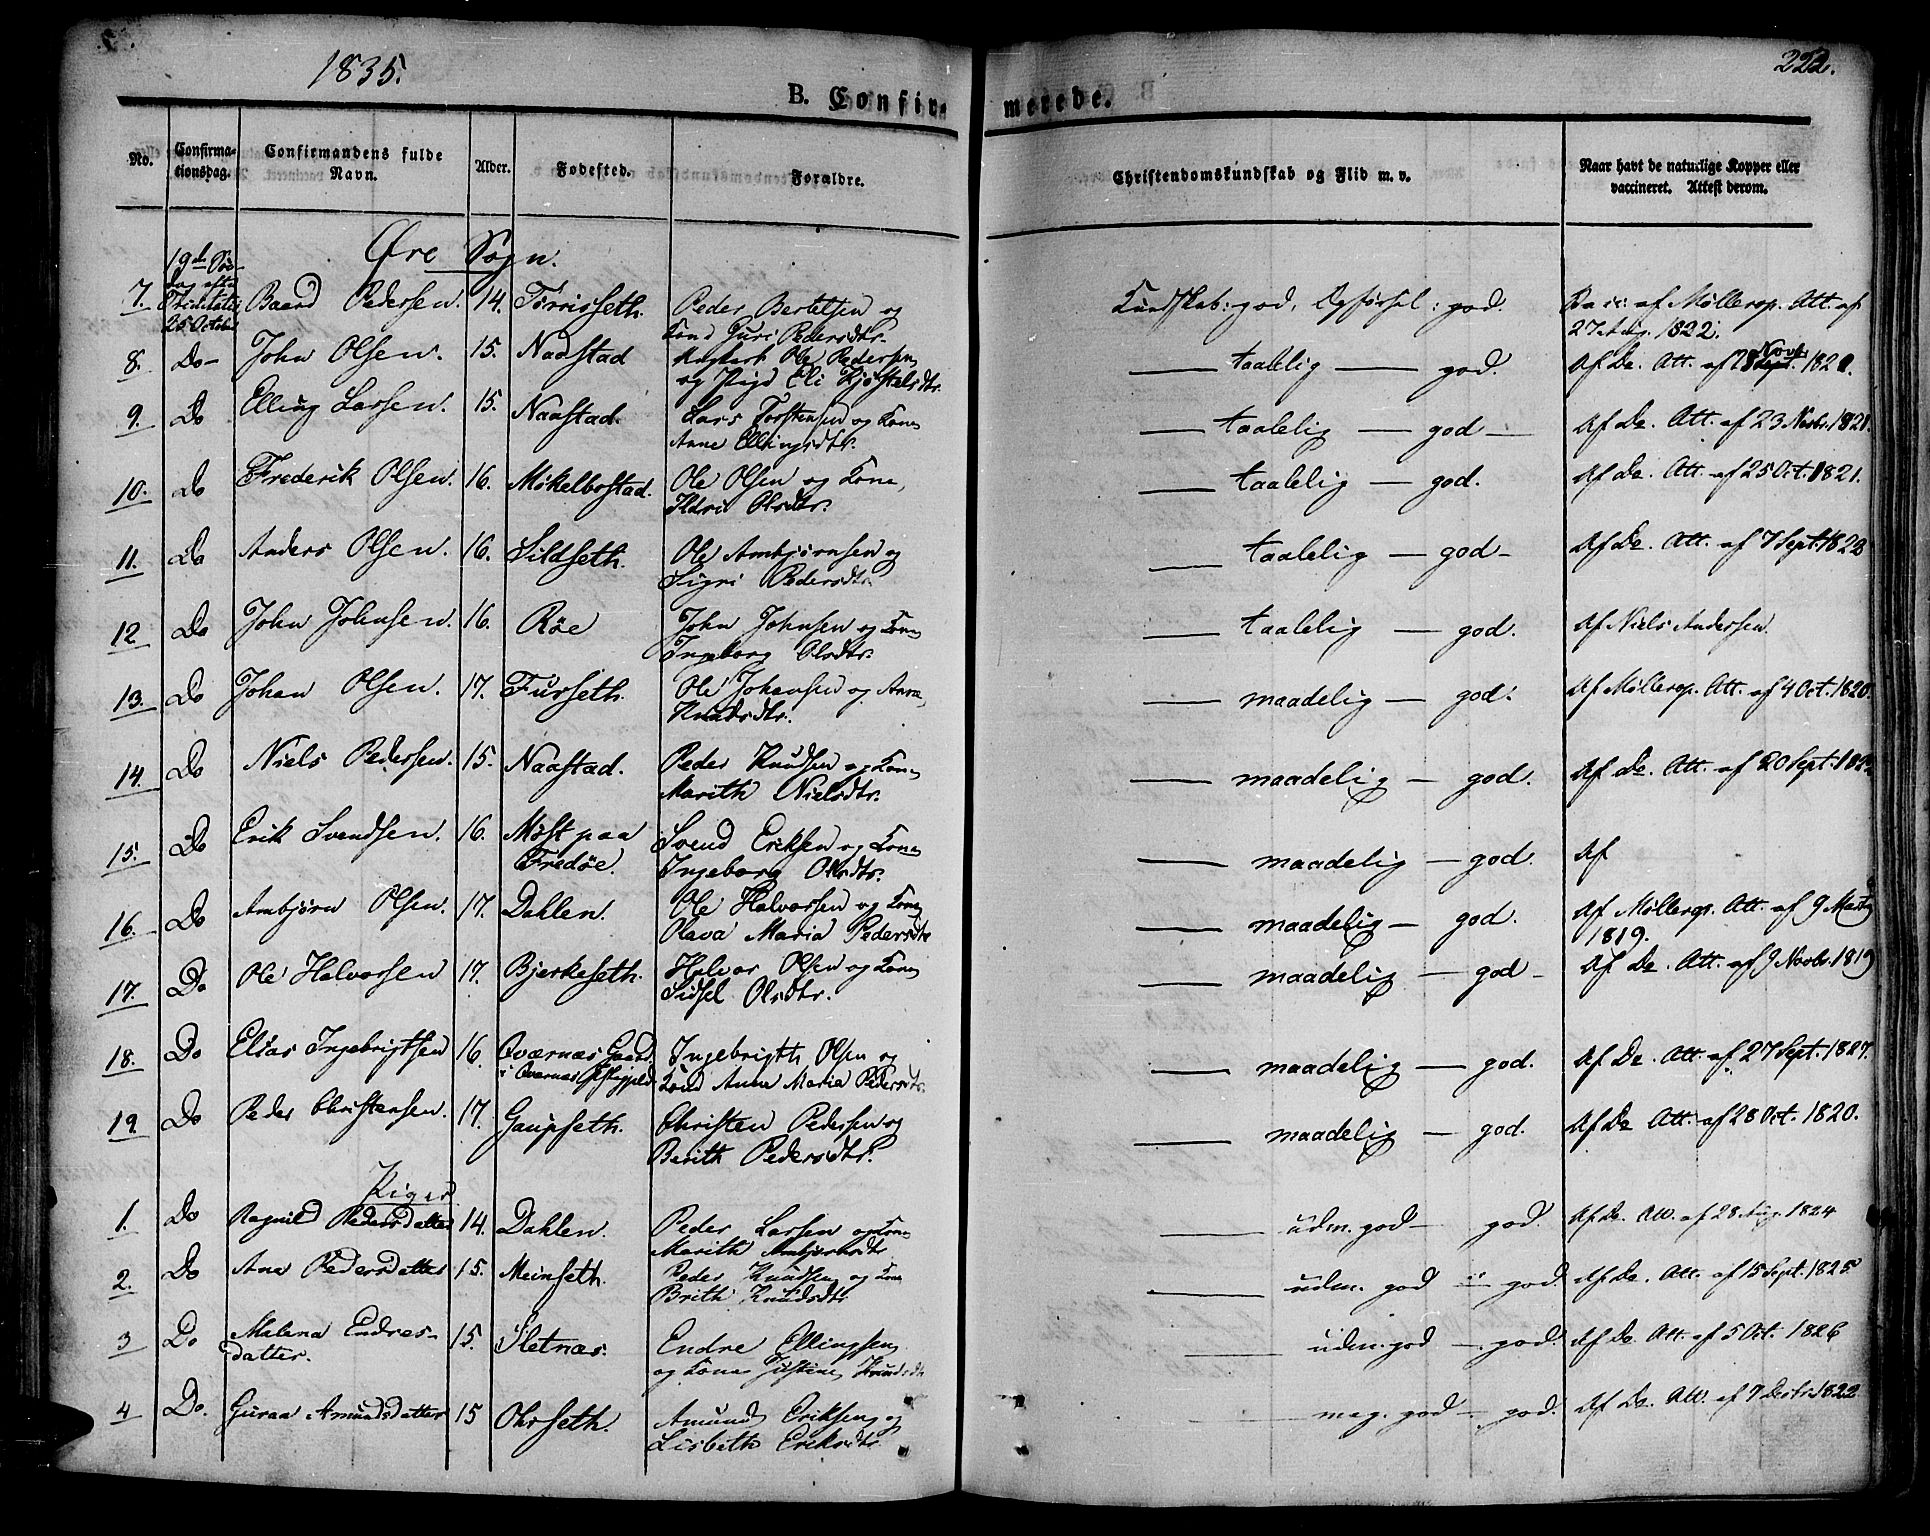 1835.
222.
B. Confir-
merede.
No.
Confirma-
tionsdag.
Confirmandens fulde
Navn.
Alder.
Fødested.
Forældre.
Christendomskundskab og Flid m. v.
Naar havt de naturlige Kopper eller
vaccineret. Attest derom.
Øre Sogn.
19de Søn-
dag efter
Trinitatis
25 October
7. Baard Pedersen. 14. Torrisseth. Peder Bertelsen og
Kone Guri Pedersdtr.
Kundskab: god, Opførsel: god. Vacc. af Møllerop. Att. af
27 Aug. 1822.
8. Do- John Olsen. 15. Nadstad Ole Pedersen
og Pige Eli Kjøstelsdtr.
— taalelig — god. Af Do. Att. af 28 Novbr. 1821.
9. Do Elling Larsen. 15. Naastad. Lars Torstensen og Kone
Anne Ellingsdtr.
— taalelig — god — Af Do. Att. af 23 Novbr. 1821.
10. Do Frederik Olsen. 16. Mikelbostad. Ole Olsen og Kone,
Ildri Olsdtr.
— taalelig — god. Af Do. Att. af 25 Oct. 1821.
11. Do Anders Olsen. 16. Sildseth. Ole Ambjørnsen og
Sigri Pedersdtr.
— taalelig — god- Af Do. Att. af 7 Sept. 1822
12. Do John Johnsen. 16. Röe John Johnsen og Kone
Ingeborg Olsdtr.
— taalelig — god. Af Niels Andersen.
13. Do Johan Olsen. 17. Furseth. Ole Johansen og Anne
Knudsdtr.
— maadelig — god. Af Møllerop. Att. af 4 Oct. 1820.
14. Do Niels Pedersen. 15. Naastad. Peder Knudsen og Kone
Marith Nielsdtr.
— maadelig — god. Af do. Att. af 20 Sept. 1822
15. Do Erik Svendsen. 16. Møst paa
Fredöe. Svend Eriksen og Kone
Ingeborg Olsdtr.
— maadelig — god. Af
16. Do Ambjørn Olsen. 17. Dahlen. Ole Halvorsen og Kone
Olava Maria Pedersdtr
— maadelig — god. Af Møllerop. Att. af 9 Martz
1819.
17. Do Ole Halvorsen 17. Bjerkeseth. Halvor Olsen og Kone
Sidsel Olsdtr.
— maadelig — god - Af Do. Att. af 9 Novbr. 1819
18. Do Elias Ingebrigtsen 16 Qværnæs Gaard
i Qværnæs Præstegjeld Ingebrigth Olsen og
Kone Anne Maria Pedersdtr.
— maadelig — god. Af Do. Att. af 27 Sept. 1827.
19. Do Peder Christensen. 17. Gaupseth. Christen Pedersen og
Berith Pedersdtr.
— maadelig — god. Af Do Att. af 28 Oct. 1820.
Piger
1. Do Ragnild Pedersdatter 14. Dahlen. Peder Larsen og Kone
Marith Ambjørnsdtr
— udm. god — god. Af Do. Att. af 28 Aug. 1824
2. Do Ane Pedersdatter 15. Meinseth. Peder Knudsen og Kone
Brith Knudsdtr
— udm. god — god. Af Do. Att. af 15 Sept. 1825
3 Do Malena Endres-
datter. 15. Sletnæs. Endre Ellingsen
og Kone Knudsdtr
— udm. god — god. Af Do. Att. af 5 Oct. 1826
4 Do. Guraa Amundsdatter 15 Ohrseth. Amund Eriksen og
Lisbeth Eriksdtr
meg. god — god. Af Do. Att. af 7 Decbr. 1822